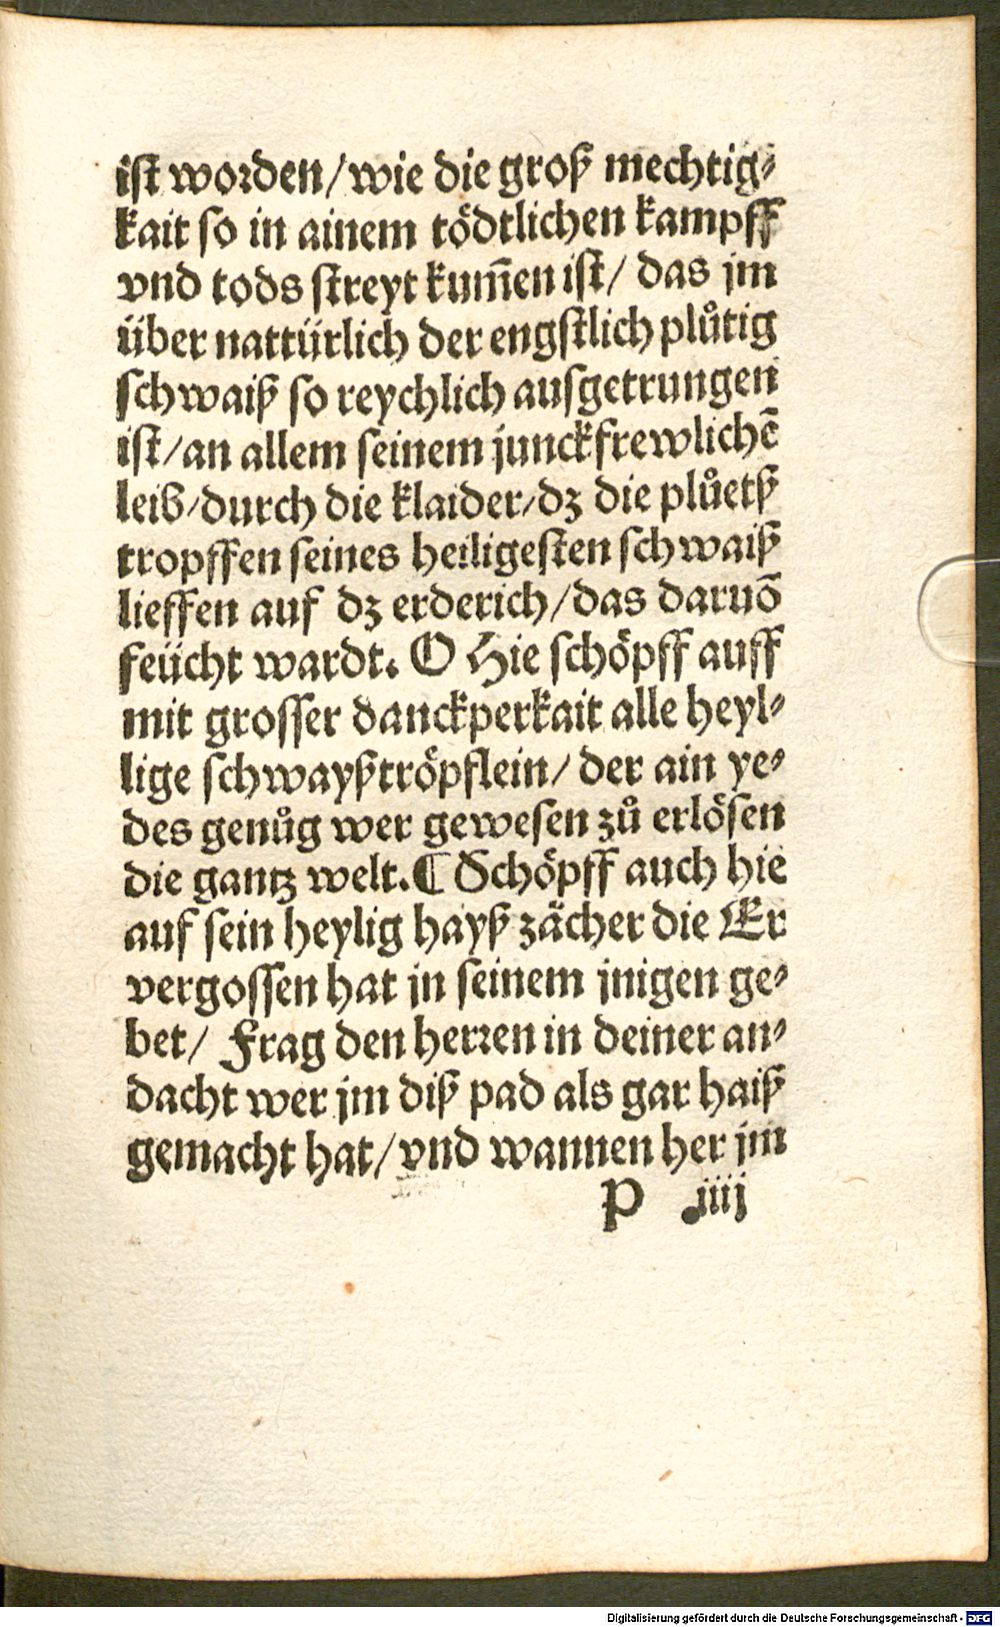 ist worden/wie die groß mechtig⸗
kait so in ainem tödtlichen kampff
vnd tods streyt kum̃en ist/ das jm
über nattürlich der engstlich plůtig
schwaiß so reychlich ausgetrungen
ist/an allem seinem junckfrewlichẽ
leib/durch die klaider/dz die plůetß
tropffen seines heiligesten schwaiß
lieffen auf dz erderich/das daruõ
feücht wardt. O Hie schöpff auff
mit grosser danckperkait alle heyl⸗
lige schwayßtröpflein/ der ain ye⸗
des genůg wer gewesen zů erlösen
die gantz welt.¶ Schöpff auch hie
auf sein heylig hayß zächer die Er
vergossen hat jn seinem jnigen ge⸗
bet/ Frag den herren in deiner an⸗
dacht wer jm diß pad als gar haiß
gemacht hat/vnd wannen her jm
P .iiij
Digitalisierung gefördert durch die Deutsche Forschungsgemeinschaft - DFG